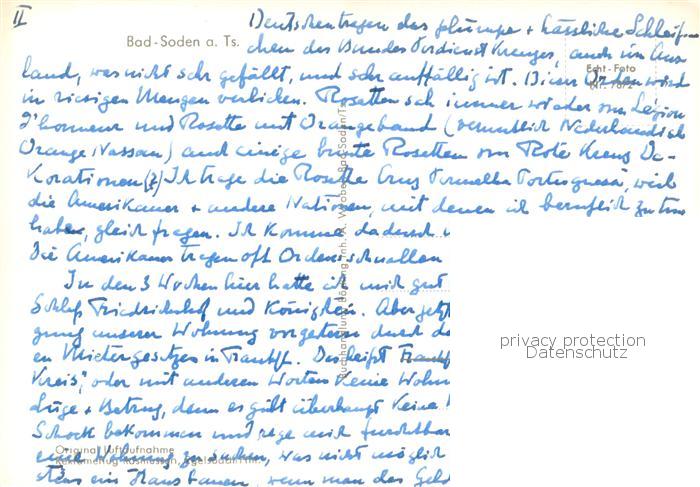 II
Deutschen tragen das plumpe + hässliche Schleif-
Bad-Soden a. Ts.
chen des Bundesverdienstkreuzes, auch im Aus
Echt-Foto
land, was nicht sehr gefällt, und sehr auffällig ist. Dieser Orden wird
in riesigen Mengen verliehen. Rosetten seh immer wieder von Légion
d'honneur und Rosette mit Orangeband (vermutlich Niederländisch
Orange Nassau) und einige bunte Rosetten von Rote Kreuz De-
korationen(?) Ich trage die Rosette Cruz Vermelha Portuguesa, weil
die Amerikaner + andere Nationen, mit denen ich beruflich zu tun
haben, gleich fragen. Ich komme dadurch
Die Amerikaner tragen oft Ordensschnallen
In den 3 Wochen hier hatte ich mich gut
Schloß Friedrichshof und Königstein. Aber jetzt
gung unserer Wohnung vorgestern durch
en Mietergesetzes in Frankft. Das heißt
Kreis", oder mit anderen Worten keine Wohn
Lüge + Betrug, denn es gilt überhaupt keine
Schock bekommen und rege mich furchtbar
Original Luftaufnahme
eine Wohnung zu suchen, was nicht möglich
stens ein Haus bauen, wenn man das Geld
privacy protection
Datenschutz